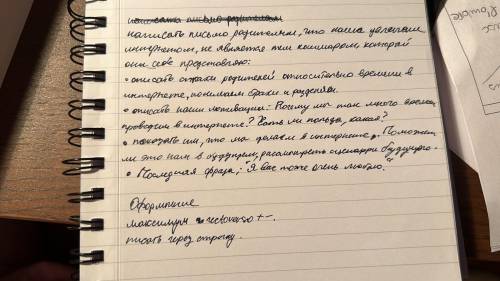 написать письмо родителям
написать письмо родителям, что наше увлечение
интернетом, не является тем кошмаром, который
они себе представляю:
• описать страхи родителей относительно времени в
интернете, понимаем страхи и разделяем.
• описать наши мотивации: Почему мы так много времени
проводим в интернете? Есть ли польза, какая?
• показать им, что мы делаем в интернете. Поможет
ли это нам в будущем, рассмотреть сценарии будущего.
• Последняя фраза: "Я вас тоже очень люблю."
Оформление
максимум rectoverso +-.
писать через строчку.